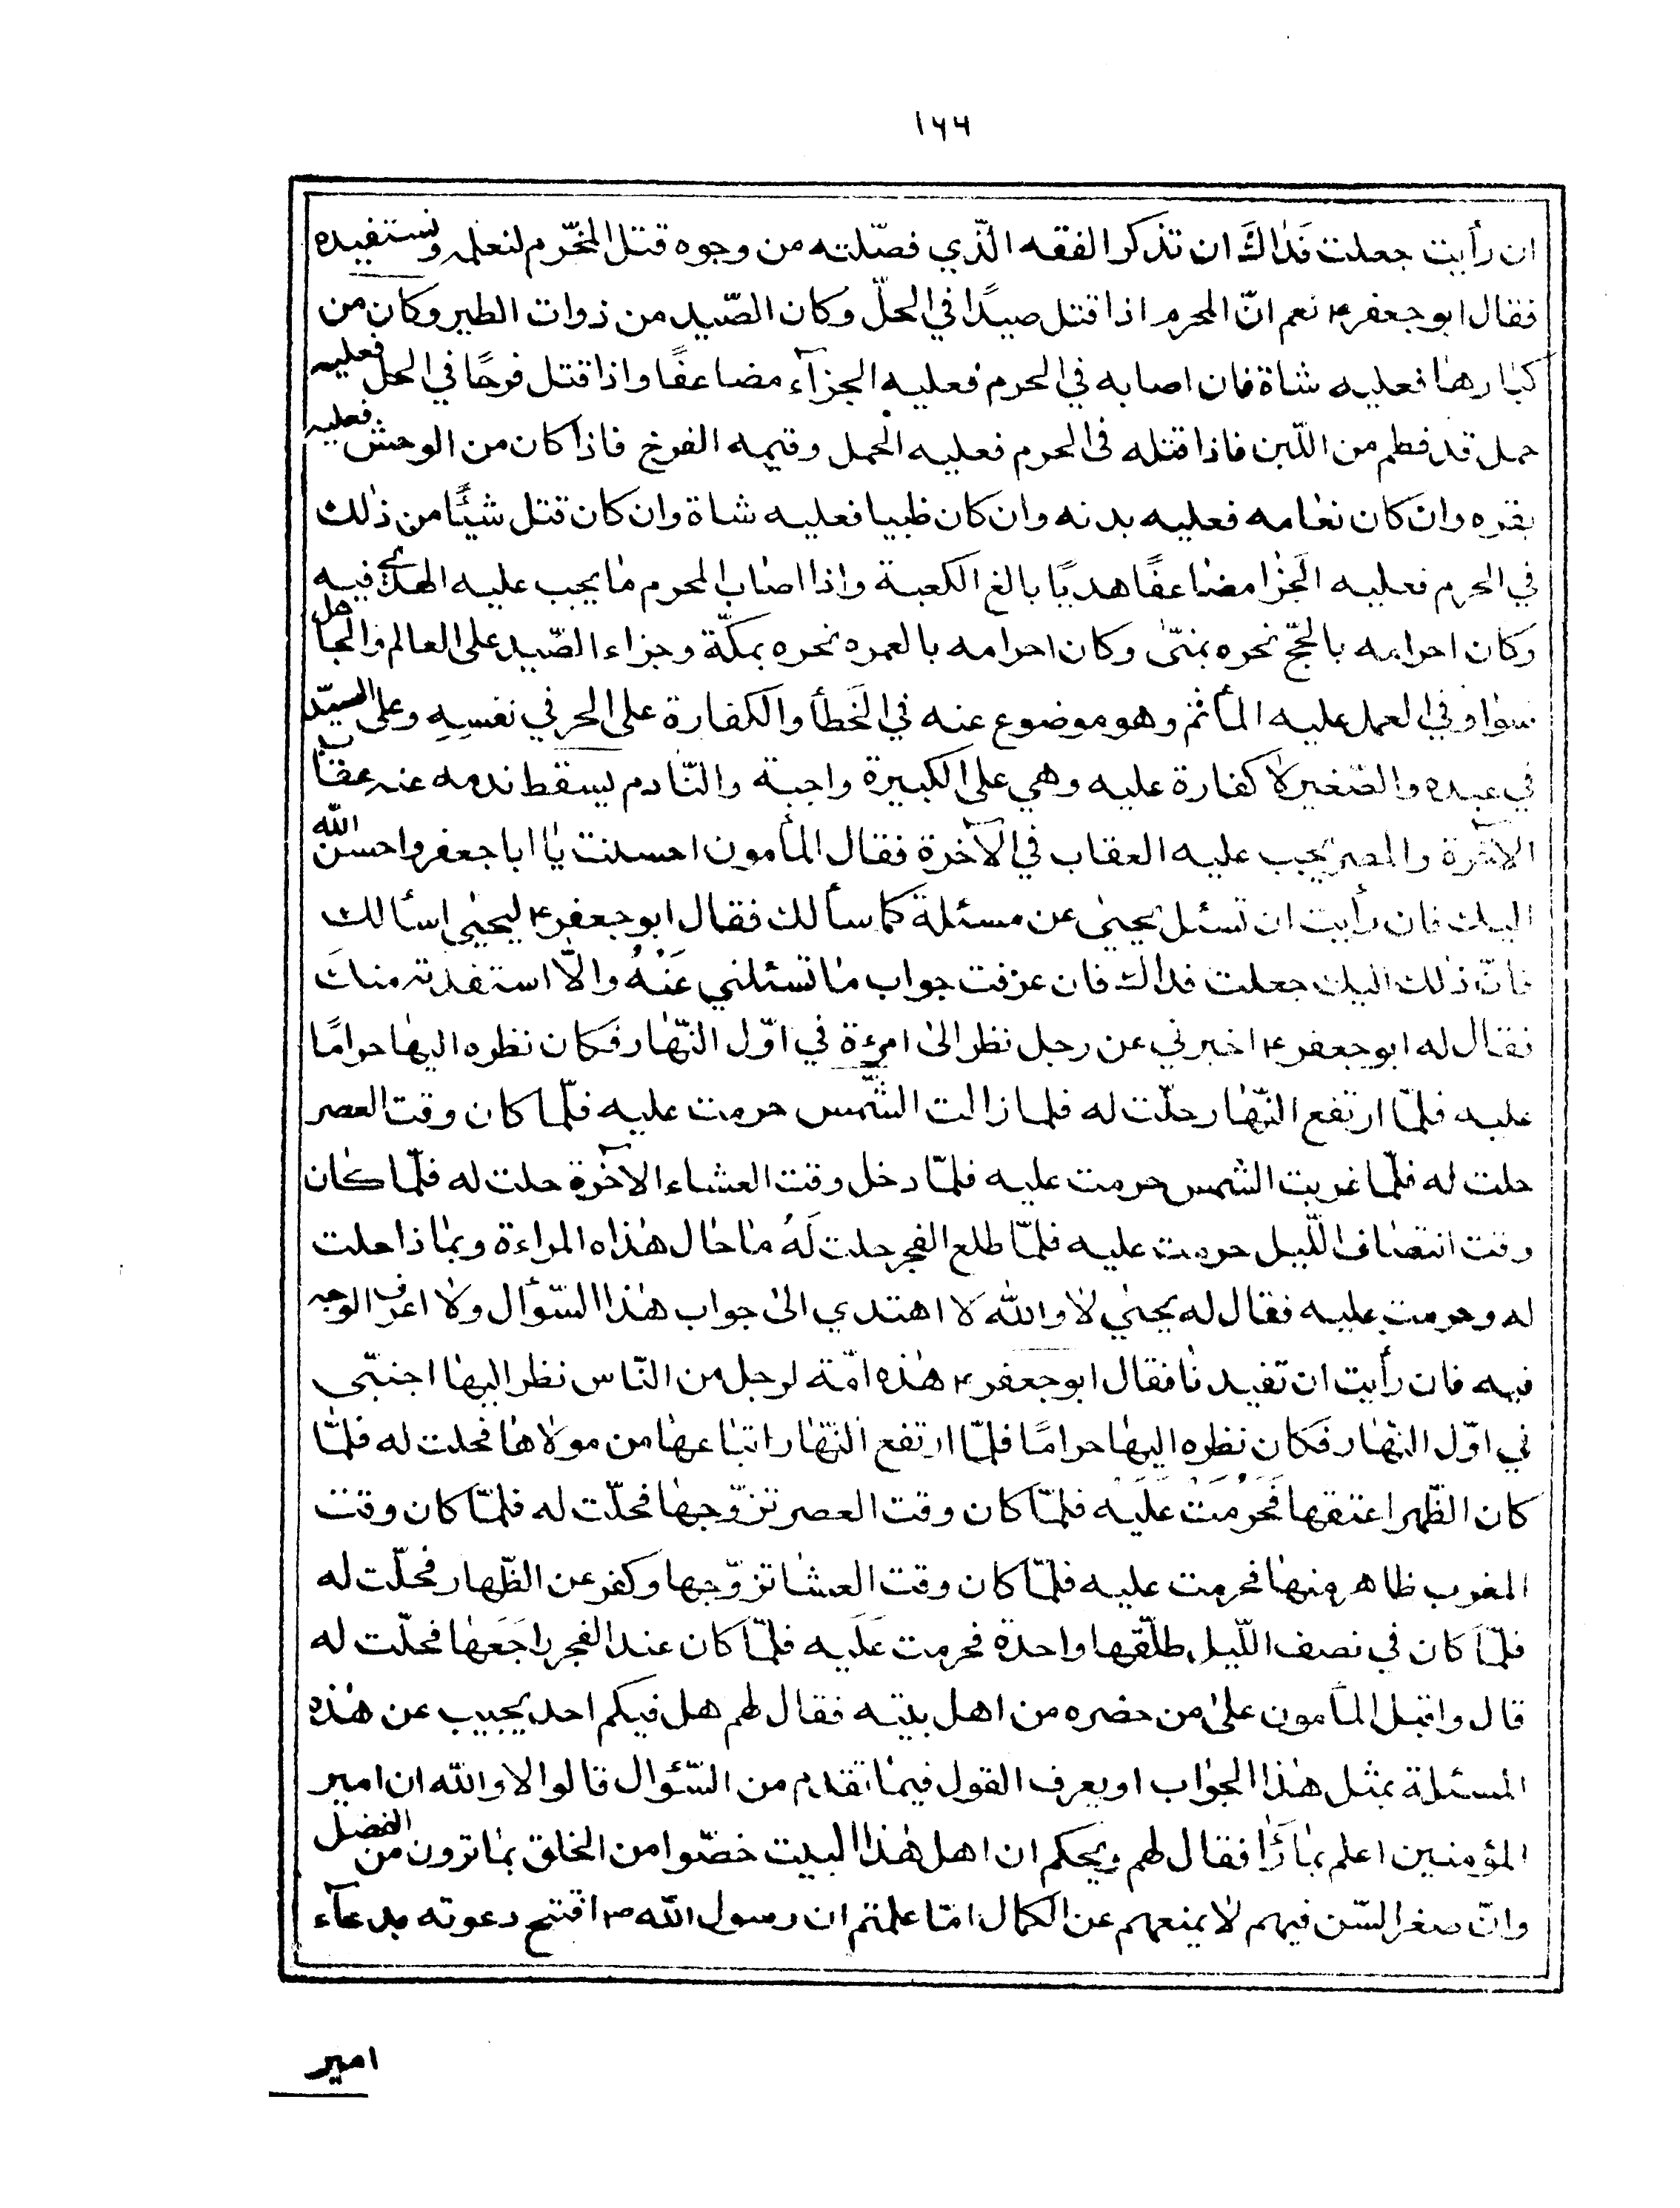 ١٦٦
ان رأيت جعلت فداك ان تذكر الفقه الّذي فصّلته من وجوه قتل المحّرم لنعلمه ونستفيده
فقال ابو جعفر ع نعم انّ المحرم اذا قتل صيدًا في الحلّ وكان الصّيد من ذوات الطير وكان من
كبارها فعليه شاة فان اصابه في الحرم فعليه الجزآء مضاعفًا واذا قتل فرخًا في الحل فعليه
حمل قد فطم من اللّبن فاذا قتله فى الحرم فعليه الحمل وقيمه الفرخ فاذا كان من الوحش فعليه
بقره وان كان نعامه فعليه بدنه وان كان ظبيا فعليه شاة وان كان قتل شيئًا من ذلك
في الحرم فعليه الجزا مضاعفًا هديًا بالغ الكعبة واذا اصاب المحرم ما يجب عليه الهدي فيه
وكان احرامه بالحجّ نحره بمنّى وكان احرامه بالعمره نحره بمكّة وجزاء الصّيد على العالم والجاهل
سواء وفي العمل عليه المأثم وهو موضوع عنه في الخطأ والكفارة على الحر في نفسه وعلى السيّد
في عبده والصّغير لا كفارة عليه وهي على الكبيرة واجبة والنّادم يسقط ندمه عنه عقاب
الآخرة والمصر يجب عليه العقاب في الآخرة فقال المأمون احسنت يا ابا جعفر واحسن الله
اليك فان رأيت ان تسئل يحيىٰ عن مسئلة كما سألك فقال ابو جعفر ع ليحيىٰ اسألك
فانّ ذلك اليك جعلت فداك فان عرفت جواب ما تسئلني عَنْهُ والّا استفدته منك
فقال له ابو جعفر ع اخبرني عن رجل نظر الىٰ امرءة في اوّل النّهار فكان نظره اليها حرامًا
عليه فلمّا ارتفع النّهار حلّت له فلما زالت الشّمس حرمت عليه فلمّا كان وقت العصر
حلت له فلمّا غربت الشمس حرمت عليه فلمّا دخل وقت العشاء الآخرة حلت له فلمّا كان
وقت انتصاف اللّيل حرمت عليه فلمّا طلع الفجر حلت لَهُ ما حال هذاه المراءة وبماذا حلت
له وحرمت عليه فقال له يحيىٰ لا والله لا اهتدي الىٰ جواب هذا السّؤال ولا اعرف الوجه
فيه فان رأيت ان تفيدنا فقال ابو جعفر ع هذه امّة لرجل من النّاس نظر اليها اجنبّي
في اوّل النّهار فكان نظره اليها حرامًا فلمّا ارتفع النّهار ابتاعها من مولاها فحلت له فلمّا
كان الظّهر اعتقها فَحَرُمَتْ عَلَيَه فلمّا كان وقت العصر تزوّجها فحلّت له فلمّا كان وقت
المغرب ظاهر منها فحرمت عليه فلمّا كان وقت العشا تزوّجها وكفر عن الظّهار فحلّت له
فلمّا كان في نصف اللّيل طلّقها واحدة فحرمت عَلَيه فلمّا كان عند الفجر راجَعَها فحلّت له
قال واقبل المأمون علىٰ من حضره من اهل بيته فقال لهم هل فيكم احد يجيب عن هذه
المسئلة بمثل هذا الجواب او يعرف القول فيما تقدم من السّؤال قالوا لا والله ان امير
المؤمنين اعلم بما رًا فقال لهم ويحكم ان اهل هذا البيت خصّوا من الخلق بما ترون من الفضل
وانّ صغر السّن فيهم لا يمنعهم عن الكمال امّا علمتم ان رسول الله ص افتتح دعوته بدعآء
امير